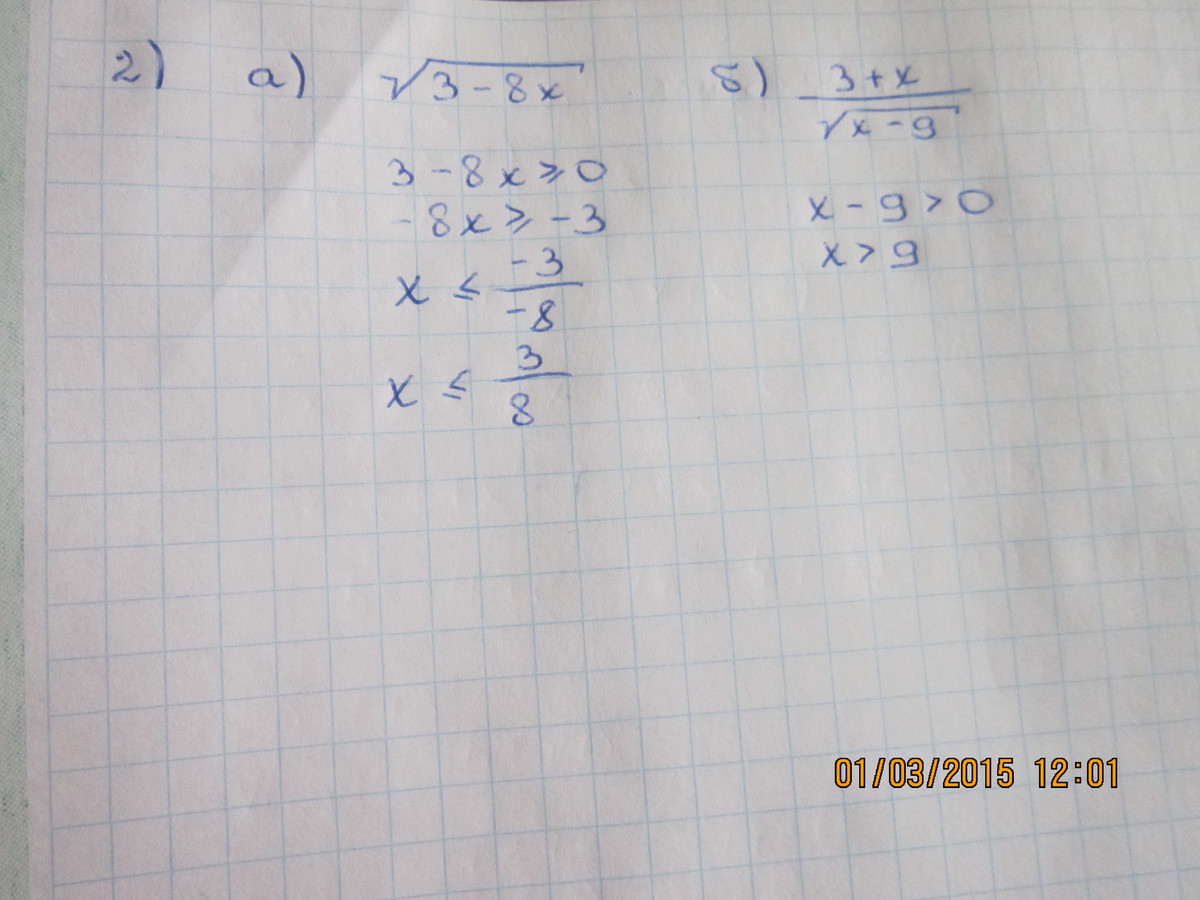 2) а) √(3-8x)
3-8x≥0
-8x≥-3
x ≤ -3/-8
x ≤ 3/8
б) 3+x/√(x-9)
x-9>0
x>9
01/03/2015 12:01